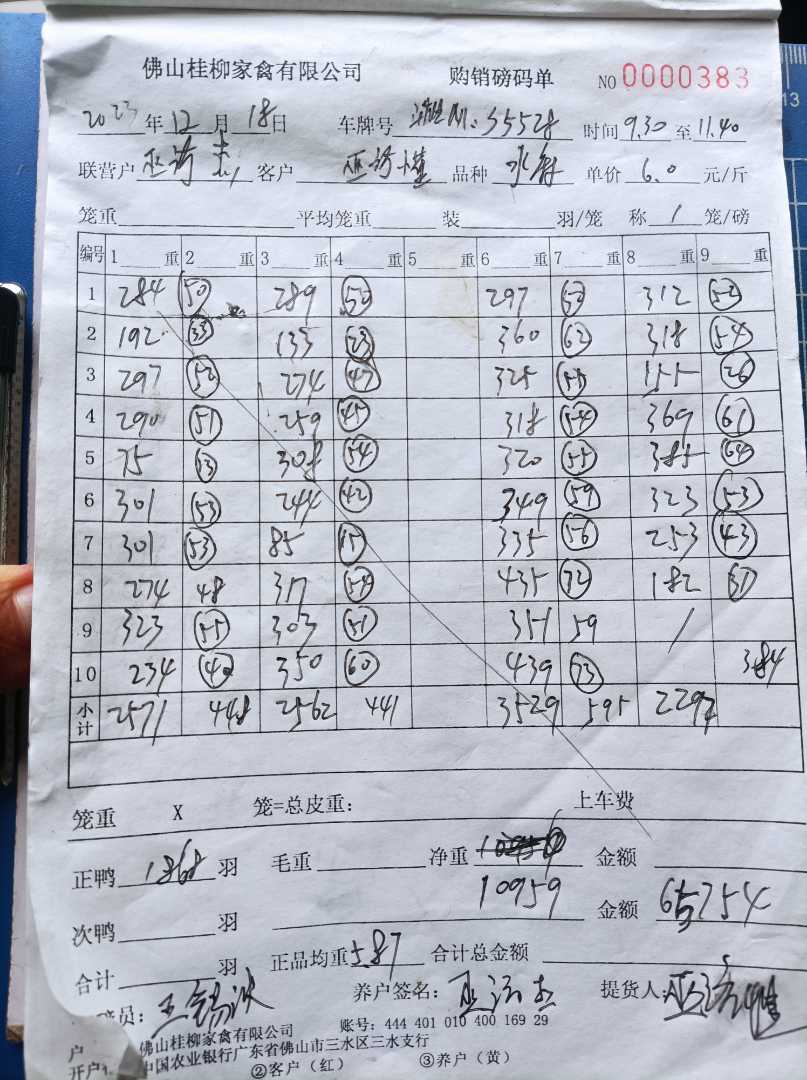 佛山桂柳家禽有限公司 购销磅码单 NO 0000383
2023年12月18日 车牌号 S5528 时间9.30至11.40
联营户 巫 客户 巫 品种 水 单价 6.0 元/斤
笼重 平均笼重 装 羽/笼 称 1 笼/磅
编号 1 重 2 重 3 重 4 重 5 重 6 重 7 重 8 重 9 重
1 284 50 289 50 297 52 312 52
2 192 33 133 23 360 62 318 54
3 297 52 274 47 325 55 155 26
4 290 51 259 45 318 54 369 61
5 75 13 308 54 320 55 385 64
6 301 53 244 42 349 59 323 53
7 301 53 85 15 335 56 253 43
8 274 48 317 54 435 72 182 31
9 323 55 303 51 351 59 /
10 234 40 350 60 439 73 384
小计 2571 448 2562 441 3529 595 2297
笼重 X 笼=总皮重: 上车费
正鸭 1868 羽 毛重 净重 金额
次鸭 羽 10959 金额 65754
合计 羽 正品均重 5.87 合计总金额
员: 王锡 养户签名: 巫 提货人: 巫
户 佛山桂柳家禽有限公司 账号: 444 401 010 400 169 29
开户 中国农业银行广东省佛山市三水区三水支行
②客户(红) ③养户(黄)